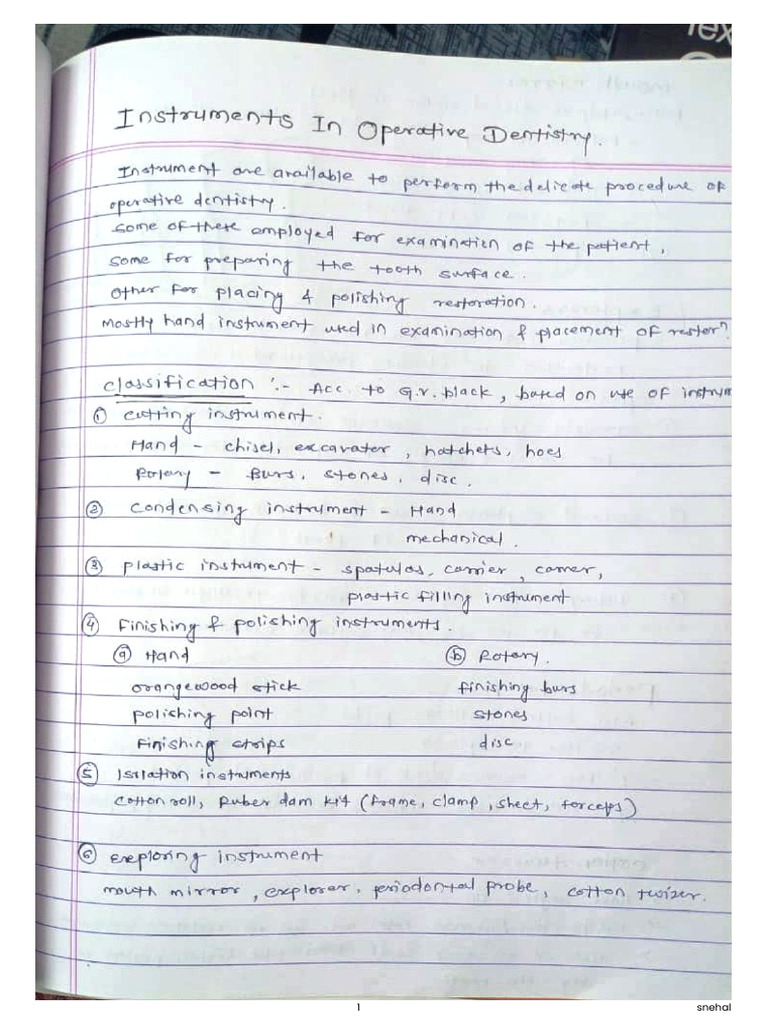 Instruments In Operative Dentistry.
Instrument are available to perform the delicate procedure of
operative dentistry.
some of these employed for examination of the patient,
some for preparing the tooth surface.
other for placing & polishing restoration.
mostly hand instrument used in examination & placement of restorn
classification :- Acc. to G.v. black, based on use of instrum
① cutting instrument.
Hand - chisel, excavater, hatchets, hoes
Rotary - Burs, stones, disc.
② condensing instrument - Hand
mechanical.
③ plastic instrument - spatulas, carrier, carver,
plastic filling instrument
④ Finishing & polishing instruments.
ⓐ Hand ⓑ Rotary.
orangewood stick finishing burs
polishing point stones
finishing strips disc
⑤ Isolation instruments
cotton roll, Ruber dam kit (frame, clamp, sheet, forceps)
⑥ exploring instrument
mouth mirror, explorer, periodontal probe, cotton twizer.
1 snehal